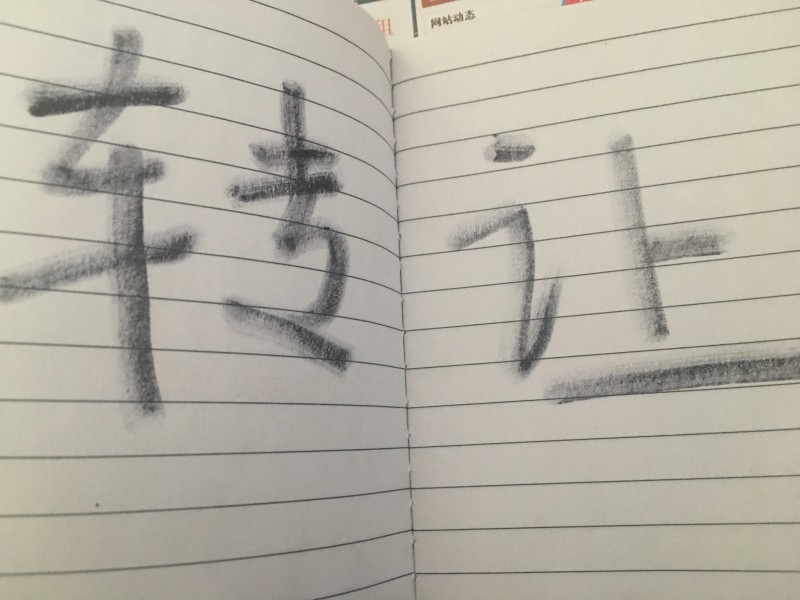 租
网站动态
转让